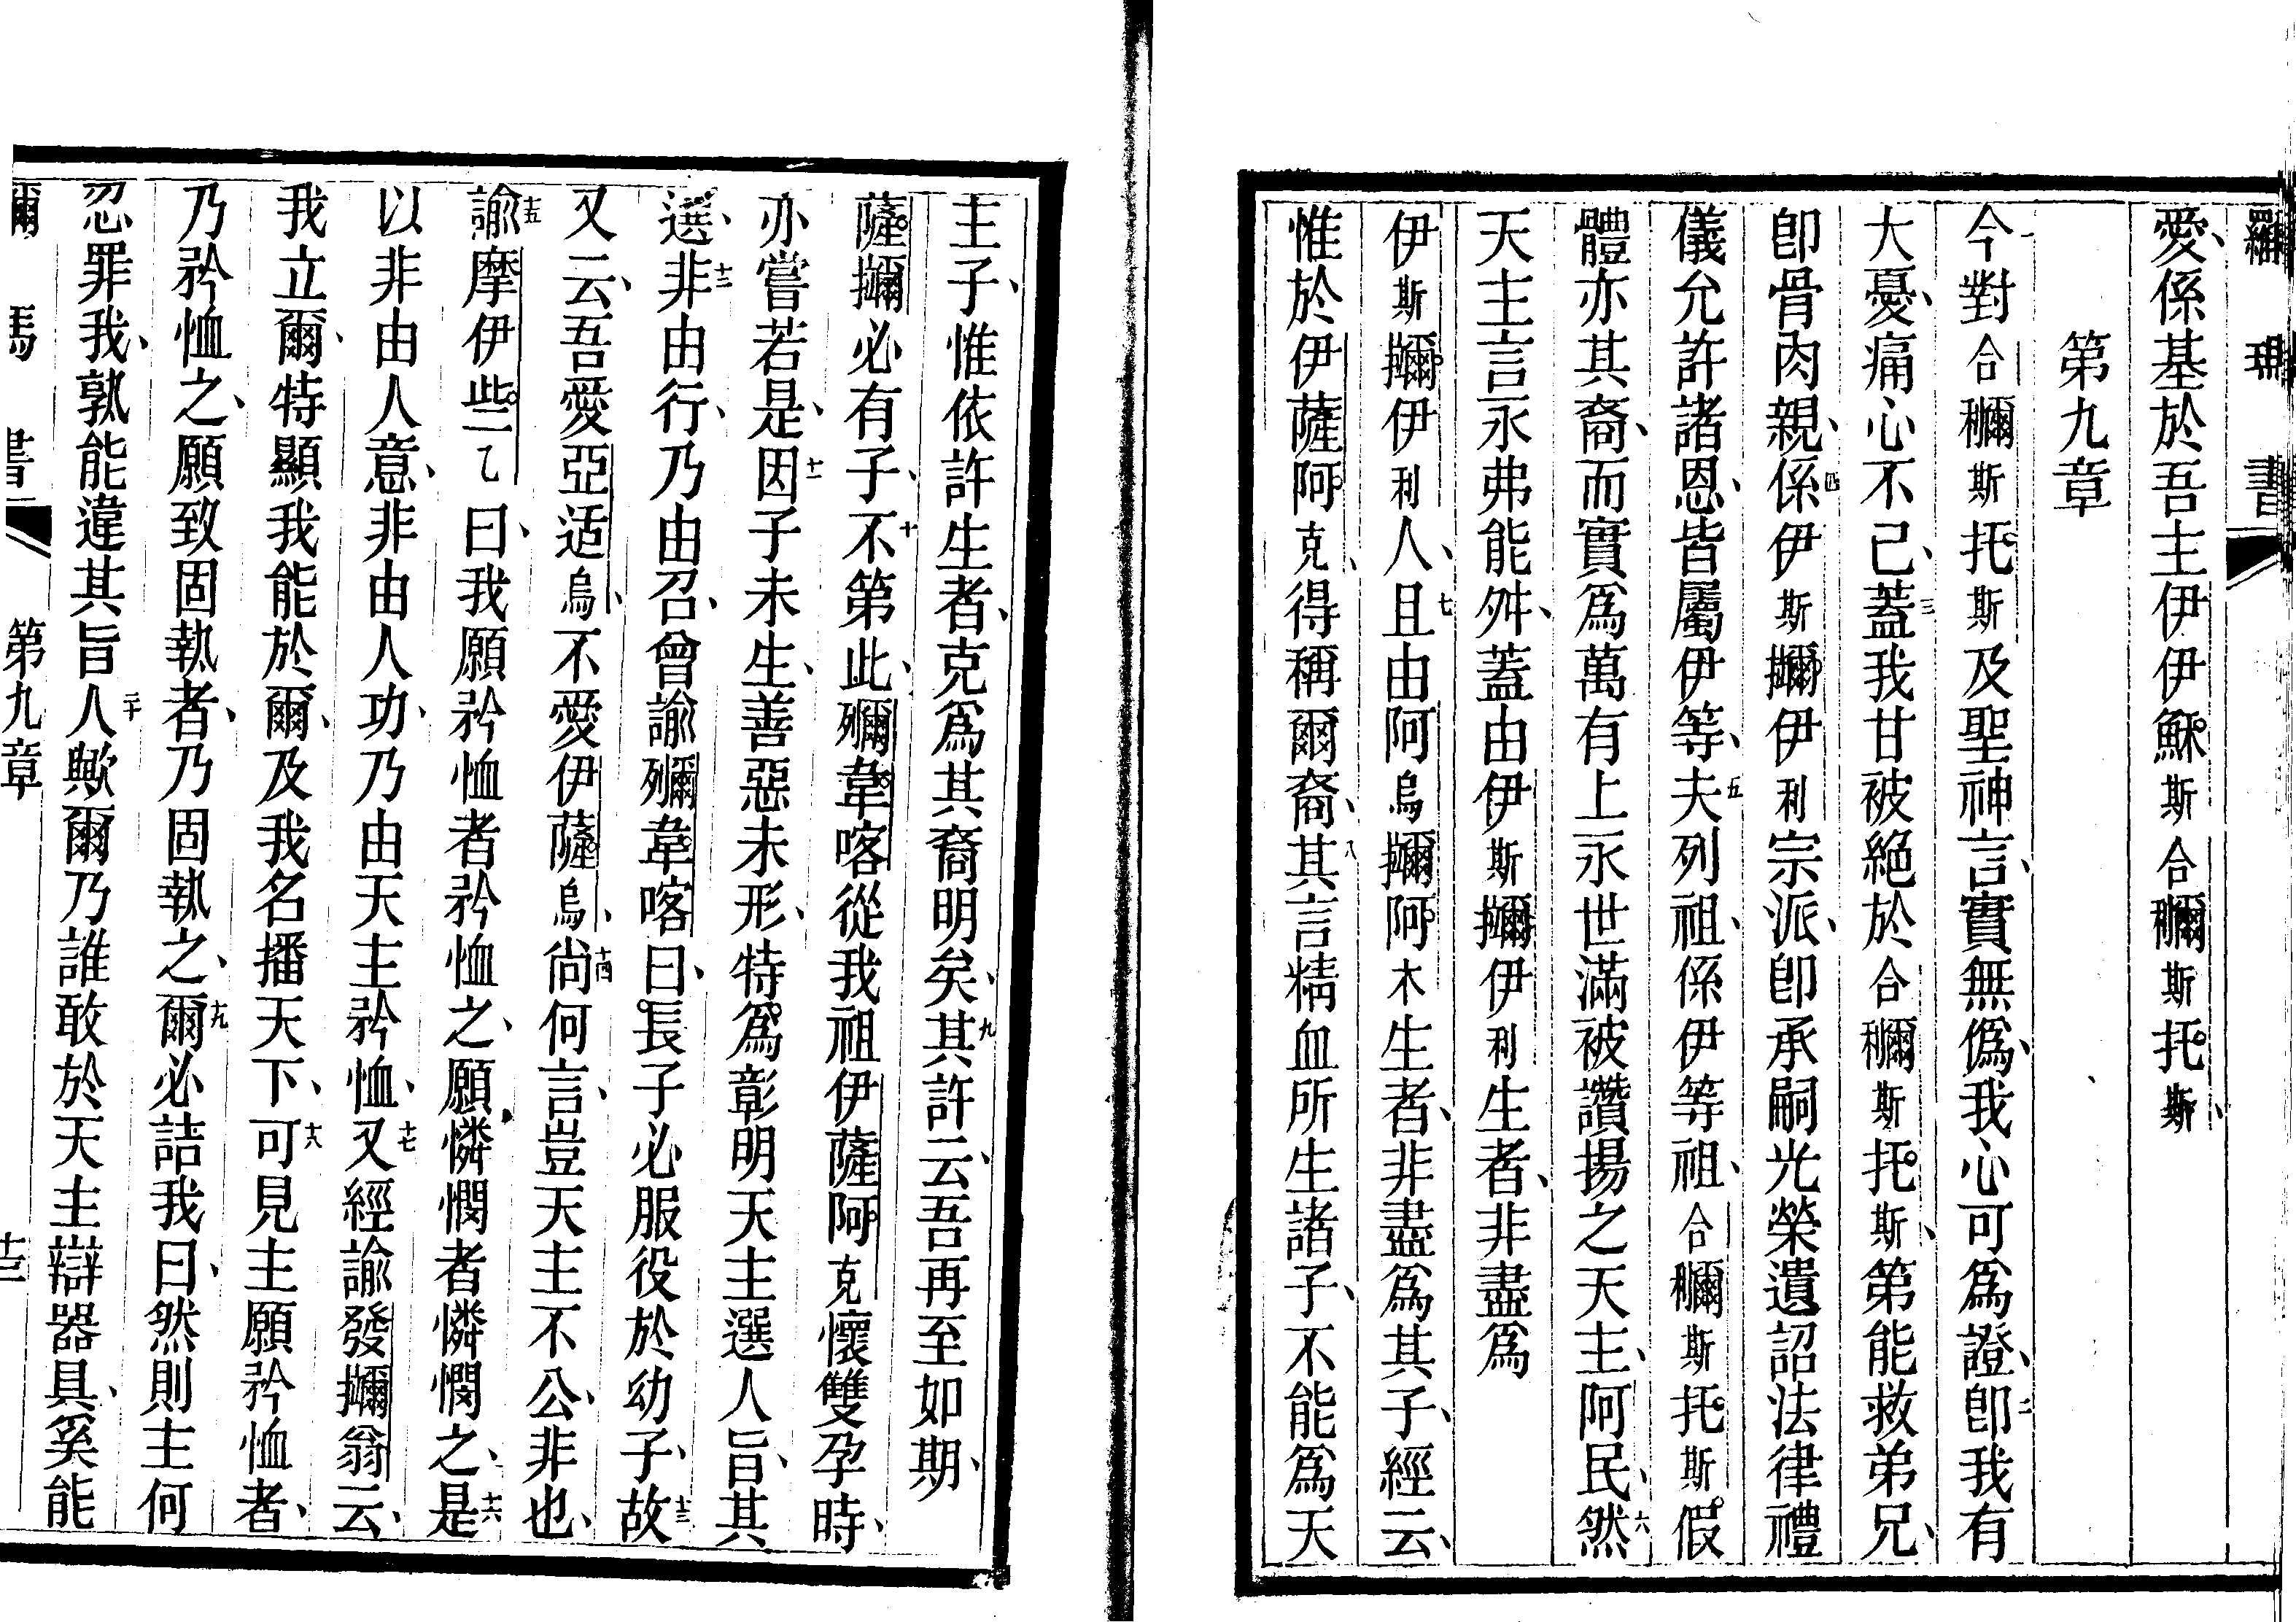 羅瑪書
愛、係基於吾主伊伊穌斯合穪斯托斯、
第九章
一今對合穪斯托斯及聖神言、實無僞、我心可爲證、二卽我有
大憂、痛心不已、三蓋我甘被絕於合穪斯托斯、第能救弟兄、
卽骨肉親、四係伊斯⿰扌爾伊利宗派、卽承嗣光榮遺詔法律禮
儀允許諸恩、皆屬伊等、五夫列祖、係伊等祖、合穪斯托斯假
體亦其裔、而實爲萬有上永世滿被讚揚之天主、阿民、六然
天主言永弗能舛、蓋由伊斯⿰扌爾伊利生者、非盡爲
伊斯⿰扌爾伊利人、七且由阿烏⿰扌爾阿木生者、非盡爲其子、經云、
惟於伊薩阿克、得稱爾裔、八其言精血所生諸子、不能爲天
主子、惟依許生者、克爲其裔明矣、九其許云、吾再至如期、
薩⿰扌爾必有子、十不第此、⿰歹爾韋喀從我祖伊薩阿克懷雙孕時、
亦嘗若是、十一因子未生、善惡未形、特爲彰明天主選人旨、其
選、十二非由行、乃由召、曾諭⿰歹爾韋喀曰、長子必服役於幼子、十三故
又云、吾愛亞适烏、不愛伊薩烏、十四尚何言、豈天主不公、非也、
十五諭摩伊些乙曰、我願矜恤者矜恤之、願憐憫者憐憫之、十六是
以非由人意、非由人功、乃由天主矜恤、十七又經諭發⿰扌爾翁云、
我立爾、特顯我能於爾、及我名播天下、十八可見主願矜恤者、
乃矜恤之、願致固執者、乃固執之、十九爾必詰我曰、然則主何
忍罪我、孰能違其旨、二十人歟爾乃誰、敢於天主辯、器具、奚能
馬書 第九章